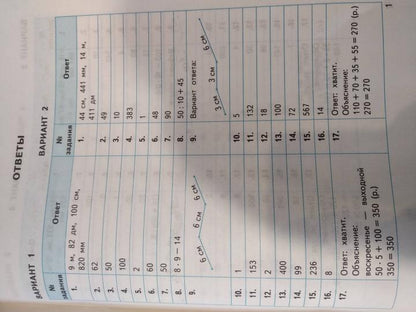 ОТВЕТЫ
ВАРИАНТ 1
№ задания
Ответ
1. 9 м, 82 дм, 100 см,
820 мм
2. 62
3. 50
4. 100
5. 2
6. 60
7. 50
8. 8 · 9 − 14
9.
6 см
6 см
6 см
10. 1
11. 153
12. 2
13. 400
14. 99
15. 236
16. 8
17. Ответ: хватит.
Объяснение:
воскресенье — выходной
50 · 5 + 100 = 350 (р.)
350 = 350
ВАРИАНТ 2
№ задания
Ответ
1. 44 см, 441 мм, 14 м,
411 дм
2. 49
3. 10
4. 383
5. 1
6. 48
7. 90
8. 50 : 10 + 45
9. Вариант ответа:
3 см
3 см
6 см
10. 5
11. 132
12. 18
13. 100
14. 72
15. 567
16. 14
17. Ответ: хватит.
Объяснение:
110 + 70 + 35 + 55 = 270 (р.)
270 = 270
1